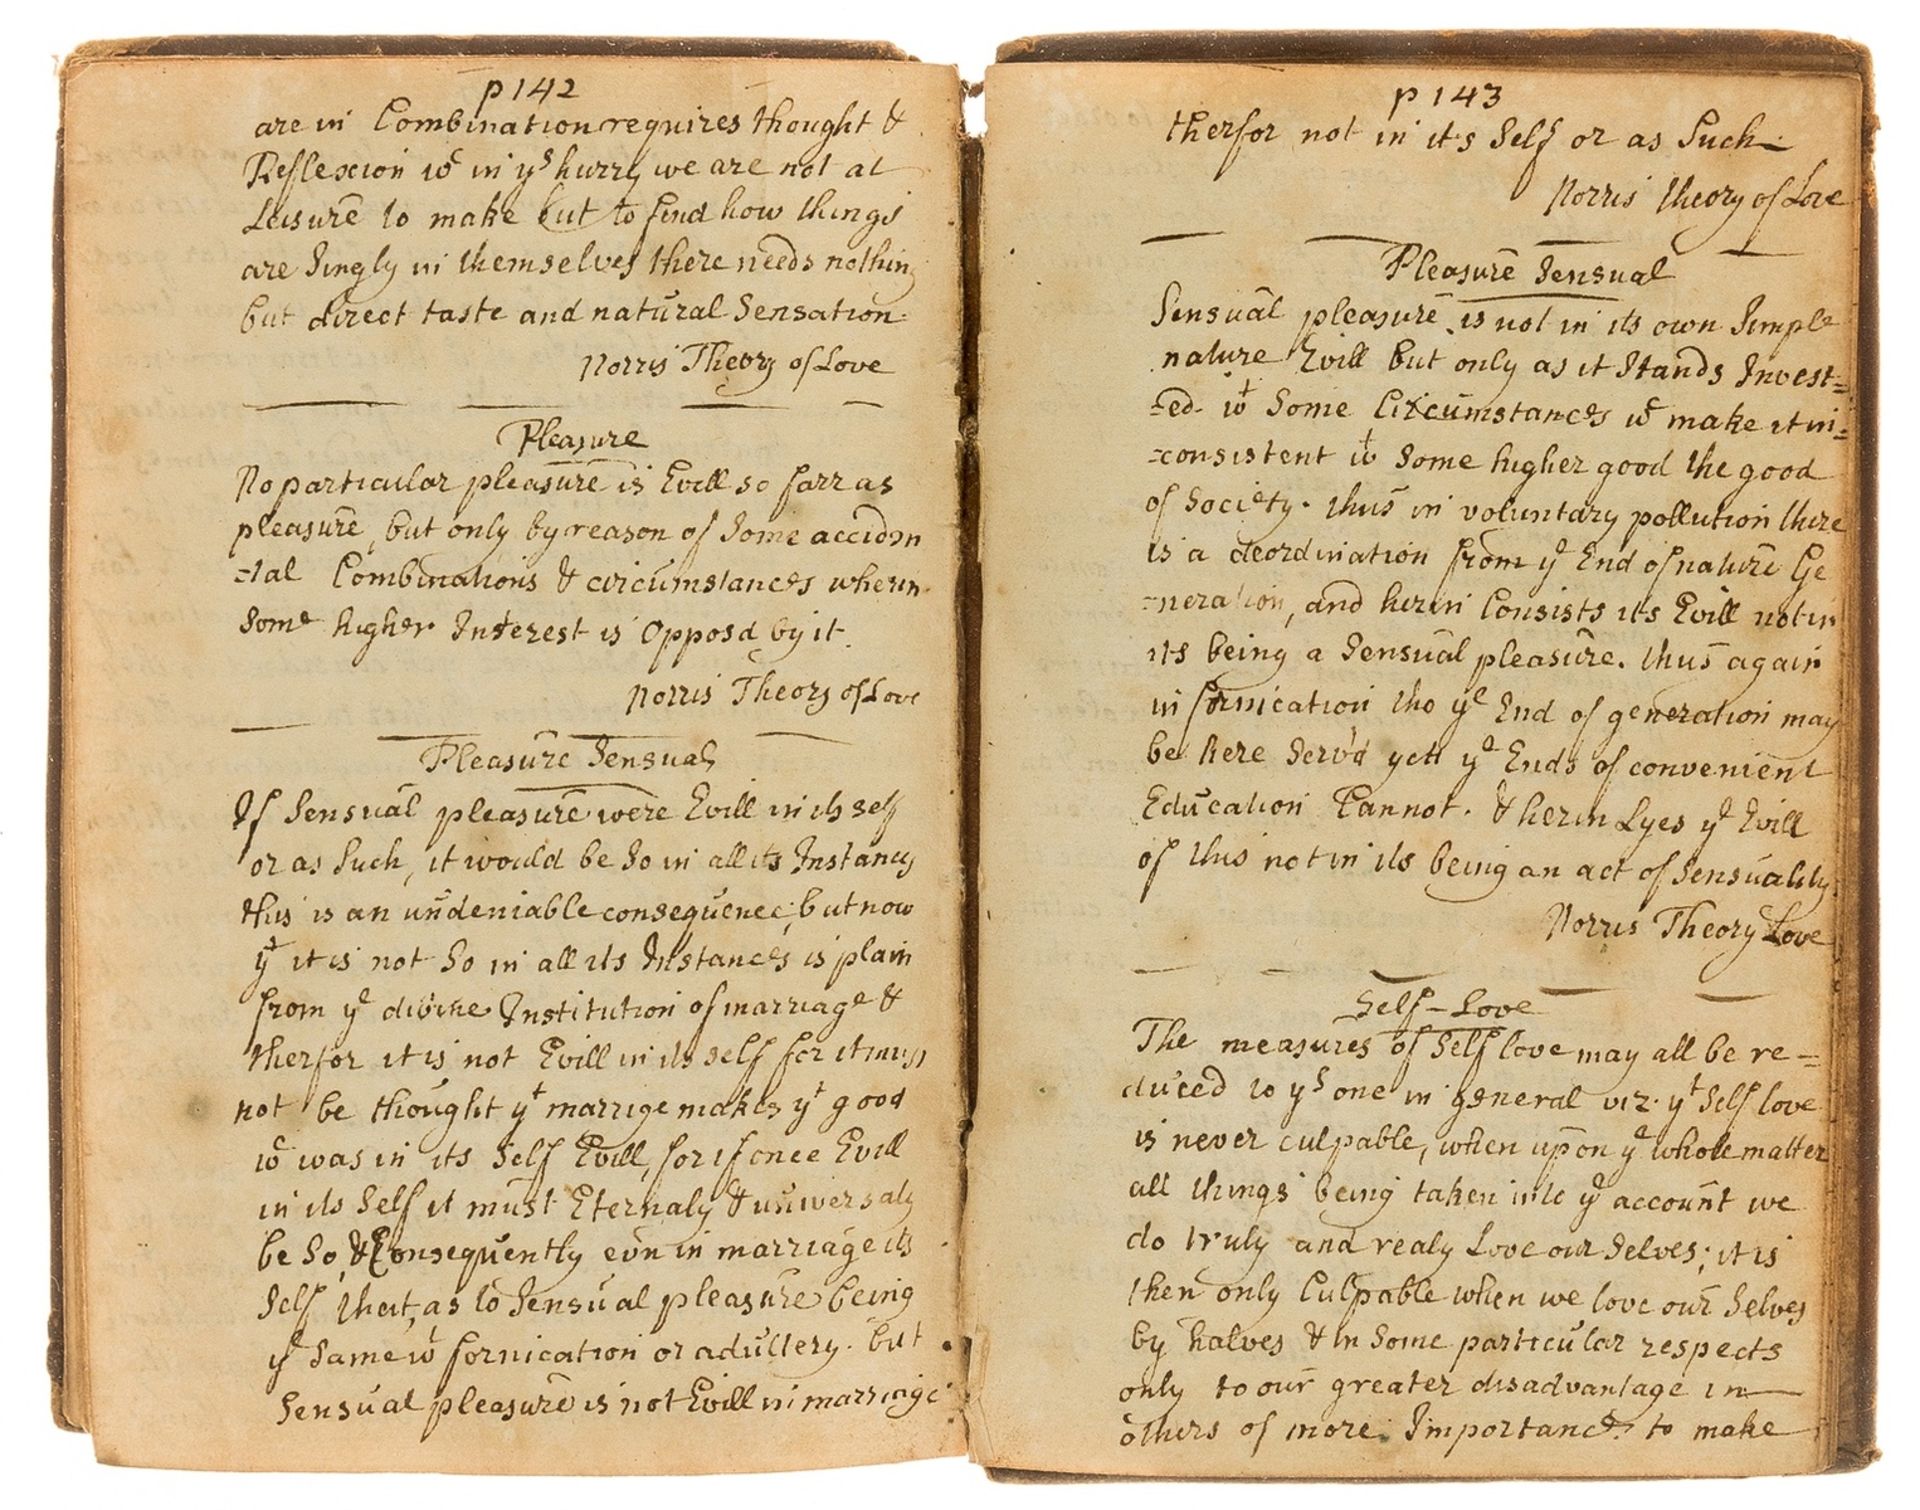 p 142
are in Combination requires thought &
Reflexion wc in ys hurry we are not at
Leisure to make but to find how things
are Singly in themselves there needs nothing
but direct taste and natural Sensation.
Norris Theory of Love
Pleasure
No particular pleasure is Evill so farr as
pleasure, but only by reason of Some acciden
=tal Combinations & circumstances wherin
Some higher Interest is Opposd by it.
Norris Theory of Love
Pleasure Sensual
If Sensual pleasure were Evill in its self
or as Such, it would be So in all its Instances
this is an undeniable consequence; but now
yt it is not So in all its Instances is plain
from ye divine Institution of marriage &
therfor it is not Evill in its self for it must
not be thought yt marrige makes yt good
wc was in its Self Evill, for if once Evill
in its Self it must Eternaly & universaly
be So, & Consequently evn in marriage its
Self that, as to Sensual pleasure being
ye Same wt fornication or adultery. but
Sensual pleasure is not Evill in marriage
p 143
therfor not in it's Self or as Such
Norris theory of Love
Pleasure Sensual
Sensual pleasure is not in its own Simple
nature Evill but only as it Stands Invest=
=ed. wt Some Circumstances wc make it in=
=consistent wt Some higher good the good
of Society. thus in voluntary pollution there
is a deordination from ye End of nature Ge
=neration, and herin Consists its Evill not in
its being a Sensual pleasure. thus again
in fornication tho ye End of generation may
be here Serv'd yett ye Ends of convenient
Education Cannot. & herin Lyes ye Evill
of this not in its being an act of Sensuality.
Norris Theory Love
Self-Love
The measures of Self love may all be re=
duced to ys one in general viz. yt Self love
is never culpable, when upon ye whole matter
all things being taken into ye account we
do truly and realy Love our Selves; it is
then only Culpable when we love our Selves
by halves & in Some particular respects
only to our greater disadvantage in
others of more Importance to make